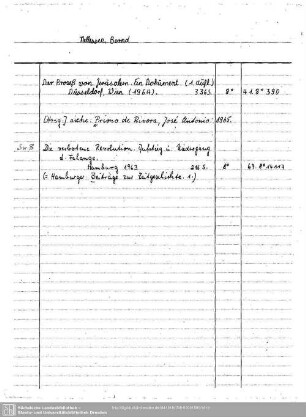 Nellessen, Bernd
Der Prozeß von Jerusalem. Ein Dokument (1. Aufl.)
Düsseldorf, Wien (1964). 336 S. 8° 41. 8° 390
[Hrsg.] siehe: Primo de Rivera, José Antonio: 1965.
Die verbotene Revolution. Aufstieg u. Niedergang
d. Falange.
Hamburg 1963 8° 63. 8°
(= Hamburger Beiträge zur Zeitgeschichte. 1.)
Sächsische Landesbibliothek -
Staats- und Universitätsbibliothek Dresden